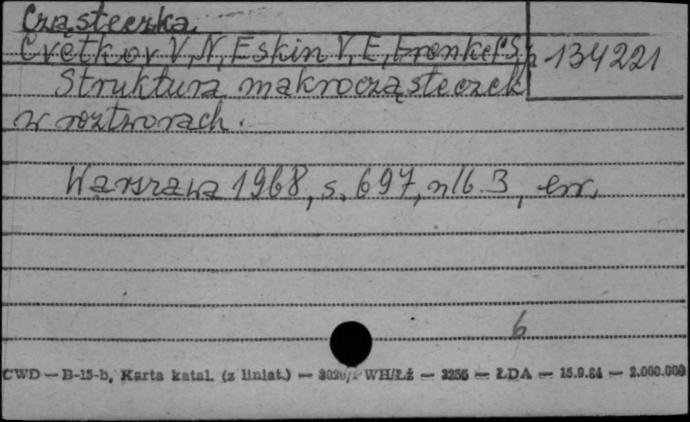 Cząsteczka
Cvetkov V, N, Eskin V, E, Frenkel S,
134221
Struktura makrocząsteczek
w roztworach.
Warszawa 1968, s. 697, nlb 3, err,
6
CWD — B-15-b, Karta katal. (z liniat.) — WH/Łż — 3256 — ŁDA — 15.9.64 — 2.000.000